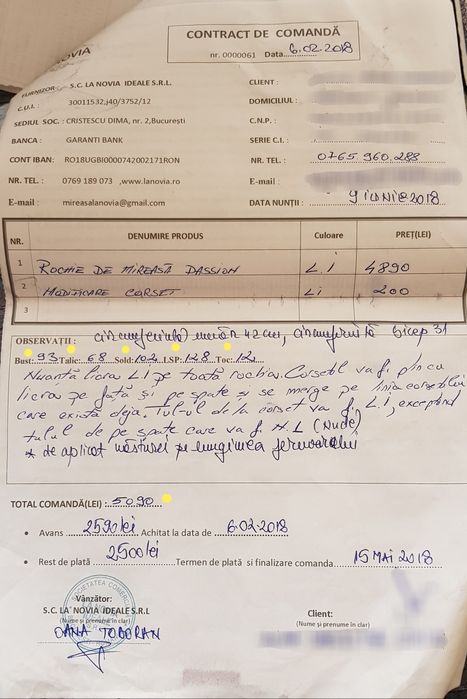 NOVIA
CONTRACT DE COMANDĂ
nr. 0000061 Data 6.02.2018
FURNIZOR: S.C. LA NOVIA IDEALE S.R.L.
CLIENT :
C.U.I. : 30011532,j40/3752/12
DOMICILIUL :
SEDIUL SOC. : CRISTESCU DIMA, nr. 2,București
C.N.P. :
BANCA : GARANTI BANK
SERIE C.I. :
CONT IBAN: RO18UGBI0000742002171RON
NR. TEL. : 0765 960.288
NR. TEL. : 0769 189 073 ,www.lanovia.ro
E-mail :
E-mail : mireasalanovia@gmail.com
DATA NUNȚII : 9 IUNIE 2018
NR. DENUMIRE PRODUS Culoare PREȚ(LEI)
1 ROCHIE DE MIREASĂ DASSION L.I 4890
2 MODIFICARE CORSET Li 200
3
circumferință mână 42 cm, circumferință bicep 31
OBSERVAȚII :
Bust: 93 Talie: 68 Sold: 102 LSP: 128 Toc: 12
Nuanță licra L.i pe toată rochia. Corsetul va fi plin cu
licra pe față și pe spate și se merge pe linia corsetului
care există deja. Tulul de la corset va fi L.I, exceptând
tulul de pe spate care va fi N.L (Nude)
* de aplicat năsturei pe lungimea fermoarului
TOTAL COMANDĂ(LEI) : 5090
• Avans 2590 lei Achitat la data de 6.02.2018
• Rest de plată 2500 lei Termen de plată si finalizare comanda 15 MAI 2018
Vânzător:
S.C. LA NOVIA IDEALE S.R.L
(Nume și prenume în clar)
OANA TODORAN
Client:
(Nume și prenume în clar)